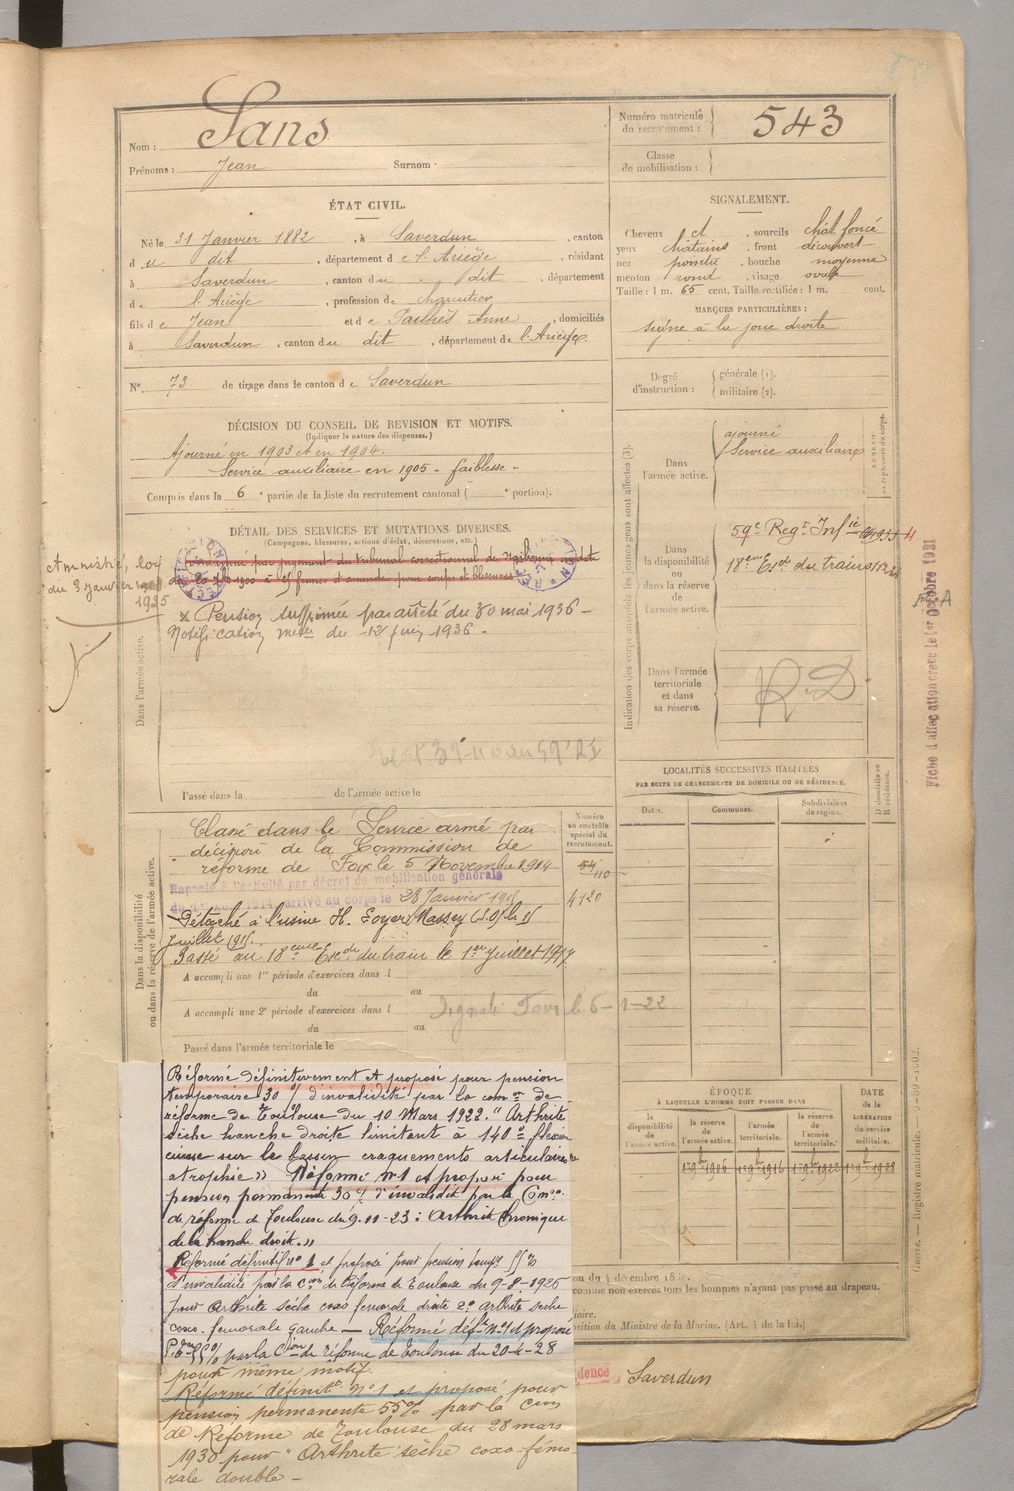 Nom : Sans
Prénoms : Jean Surnom
Numéro matricule du recrutement : 543
Classe de mobilisation :
ÉTAT CIVIL.
Né le 31 Janvier 1882, à Saverdun, canton
du dit, département de l'Ariège, résidant
à Saverdun, canton du dit, département
de l'Ariège, profession de charcutier
fils de Jean et de Anne, domiciliés
à Saverdun, canton du dit, département de l'Ariège
N° 73 de tirage dans le canton de Saverdun
SIGNALEMENT.
Cheveux et, sourcils chât. foncé
yeux châtains, front découvert
nez pointu, bouche moyenne
menton rond, visage ovale
Taille : 1 m. 65 cent. Taille rectifiée : 1 m. cent.
MARQUES PARTICULIÈRES :
signe à la joue droite
Degré d'instruction : générale (1). militaire (2).
DÉCISION DU CONSEIL DE REVISION ET MOTIFS.
(Indiquer la nature des dispenses.)
Ajourné en 1903 et en 1904.
Service auxiliaire en 1905 - faiblesse -
Compris dans la 6e partie de la liste du recrutement cantonal ( e portion).
DÉTAIL DES SERVICES ET MUTATIONS DIVERSES.
(Campagnes, blessures, actions d'éclat, décorations, etc.)
Amnistié, loi
du 3 janvier
1925
Condamné par jugement du tribunal correctionnel de Narbonne en date
à 25 francs d'amende pour coups et blessures
x Pension supprimée par arrêté du 30 mai 1936 -
Notification du 12 juin 1936 -
Dans l'armée active.
Passé dans la de l'armée active le
Indication des corps auxquels les jeunes gens sont affectés (3).
Dans l'armée active.
ajourné
Service auxiliaire
Dans la disponibilité ou dans la réserve de l'armée active.
59e Regt Infie
18eme Esc du train
Dans l'armée territoriale et dans sa réserve.
R.D
Fiche d'affectation créée le 1er Octobre 1931
LOCALITÉS SUCCESSIVES HABITÉES
PAR SUITE DE CHANGEMENTS DE DOMICILE OU DE RÉSIDENCE.
Dates. Communes. Subdivisions de région. D domicile ou R résidence.
Numéro au contrôle spécial du recrutement.
4120
Dans la disponibilité ou dans la réserve de l'armée active.
Classé dans le Service armé par
décision de la Commission de
réforme de Foix le 5 Novembre 1914
Rappelé à l'activité par décret de mobilisation générale
du 1er Août 1914, arrivé au corps le 28 Janvier 1915
Détaché à l'usine H.
Juillet 1915.
Passé au 18eme Esc du train le 1er Juillet 1917
A accompli une 1re période d'exercices dans l
du au
A accompli une 2e période d'exercices dans l
du au
Passé dans l'armée territoriale le
Réformé définitivement et proposé pour pension
temporaire 30 % d'invalidité par la comon de
réforme de Toulouse du 10 Mars 1922. "Arthrite
sèche hanche droite limitant à 140° flexion
cuisse sur le bassin craquements articulaires
atrophie» Réformé n°1 et proposé pour
pension permanente 30 % d'invalidité par la Comon
de réforme de Toulouse du 9.11-23 : Arthrite chronique
de la hanche droite.»
Réformé définitif n° 1 et proposé pour pension temp. 55 %
d'invalidité par la Con de Réforme de Toulouse du 9-8-1926
pour Arthrite sèche coxo femorale droite 2° arthrite sèche
coxo. femorale gauche — Réformé déf n°1 et proposé
55 % par la Cion de réforme de Toulouse du 20-4-28
pour même motif.
Réformé définit n°1 et proposé pour
pension permanente 55% par la Cion
de Réforme de Toulouse du 28 mars
1930 pour "Arthrite sèche coxo-fémo-
rale double -
ÉPOQUE
À LAQUELLE L'HOMME DOIT PASSER DANS
la disponibilité de l'armée active. la réserve de l'armée active. l'armée territoriale. la réserve de l'armée territoriale.
DATE de la LIBÉRATION du service militaire.
on du 4 décembre 18
comme non exercés tous les hommes n'ayant pas passé au drapeau.
iaire.
osition du Ministre de la Marine. (Art. 4 de la loi.)
dence Saverdun